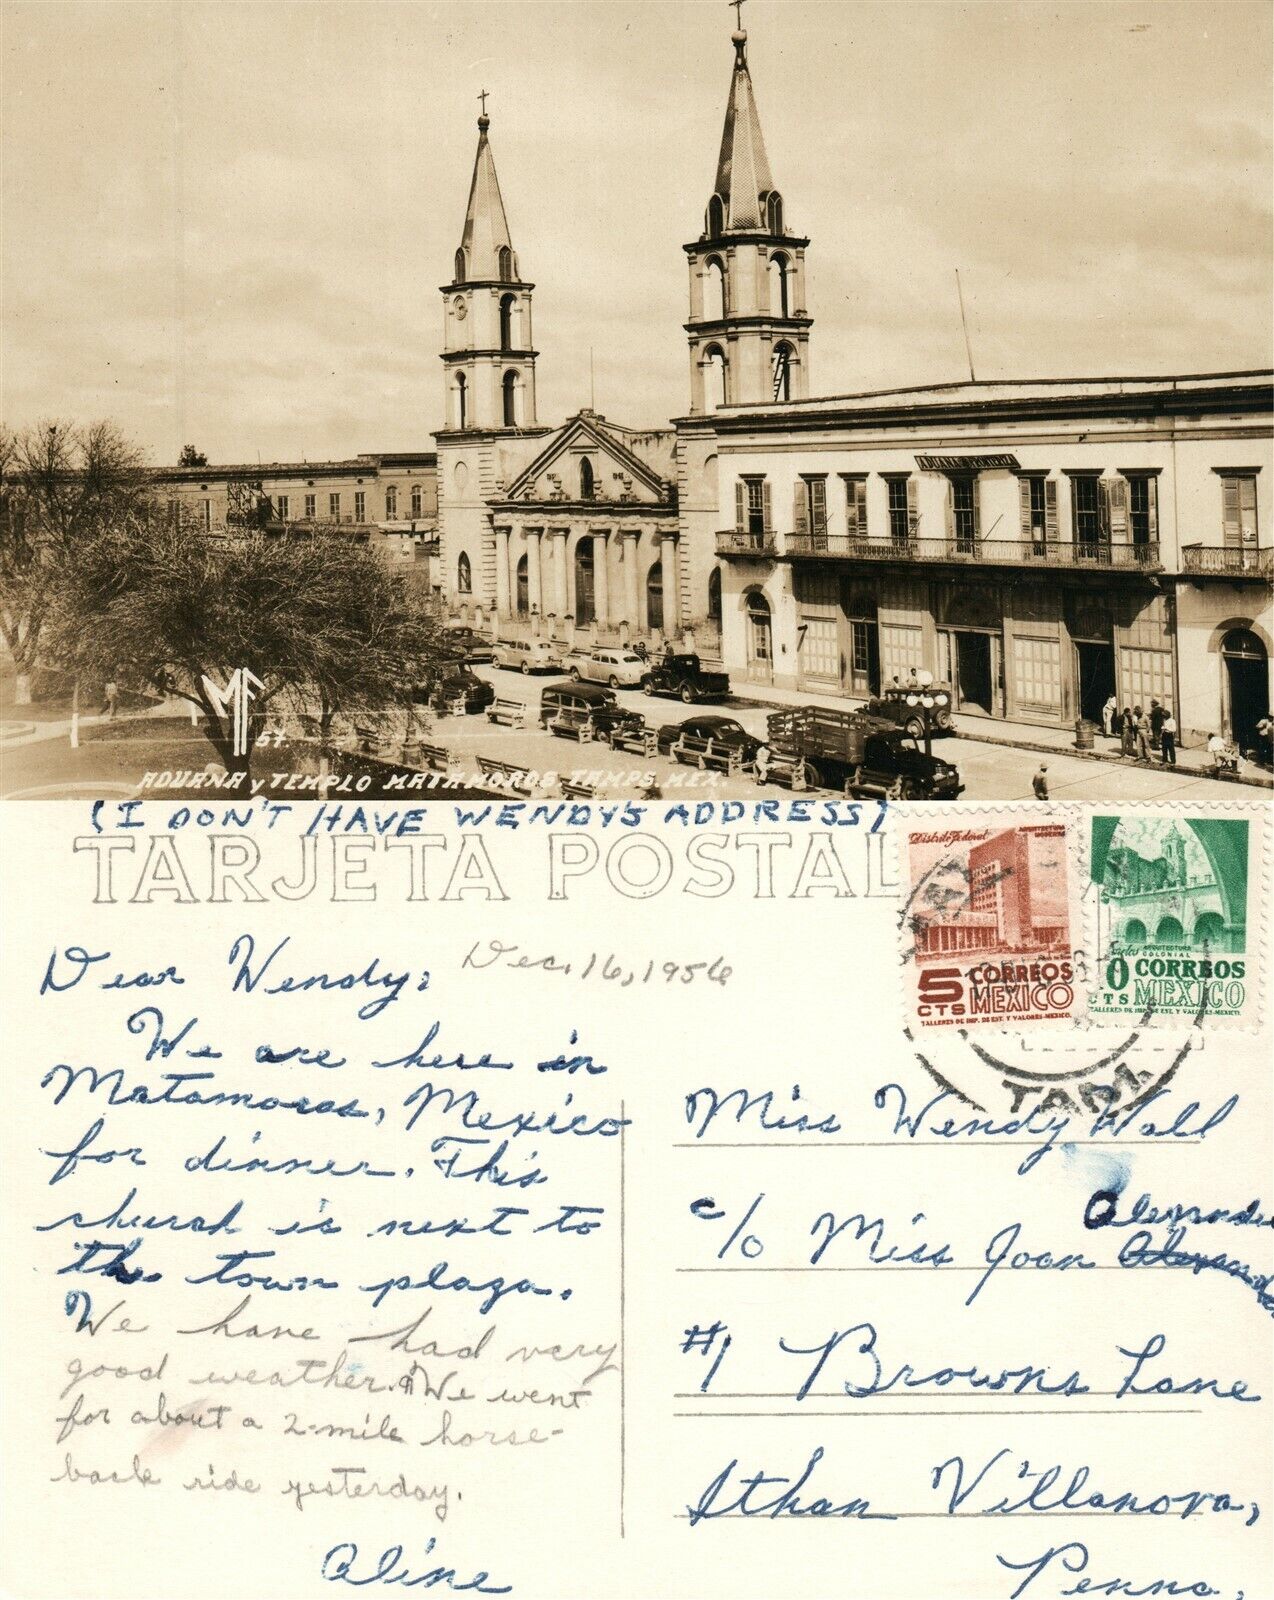 ADUANA
MF
57.
ADUANA y TEMPLO MATAMOROS, TAMPS. MEX.
(I DON'T HAVE WENDY'S ADDRESS)
TARJETA POSTAL
Distrito Federal
ARQUITECTURA
MODERNA
5 CORREOS
CTS MEXICO
TALLERES DE IMP. DE EST. Y VALORES-MEXICO.
ARQUITECTURA
COLONIAL
0 CORREOS
CTS MEXICO
TALLERES DE IMP. DE EST. Y VALORES-MEXICO.
TAM.
Dear Wendy, Dec. 16, 1956
We are here in
Matamoros, Mexico
for dinner. This
church is next to
the town plaza.
We have had very
good weather. We went
for about a 2-mile horse-
back ride yesterday.
Aline
Miss Wendy Wall
c/o Miss Joan Alexander
#1 Browns Lane
Ithan Villanova,
Penna.